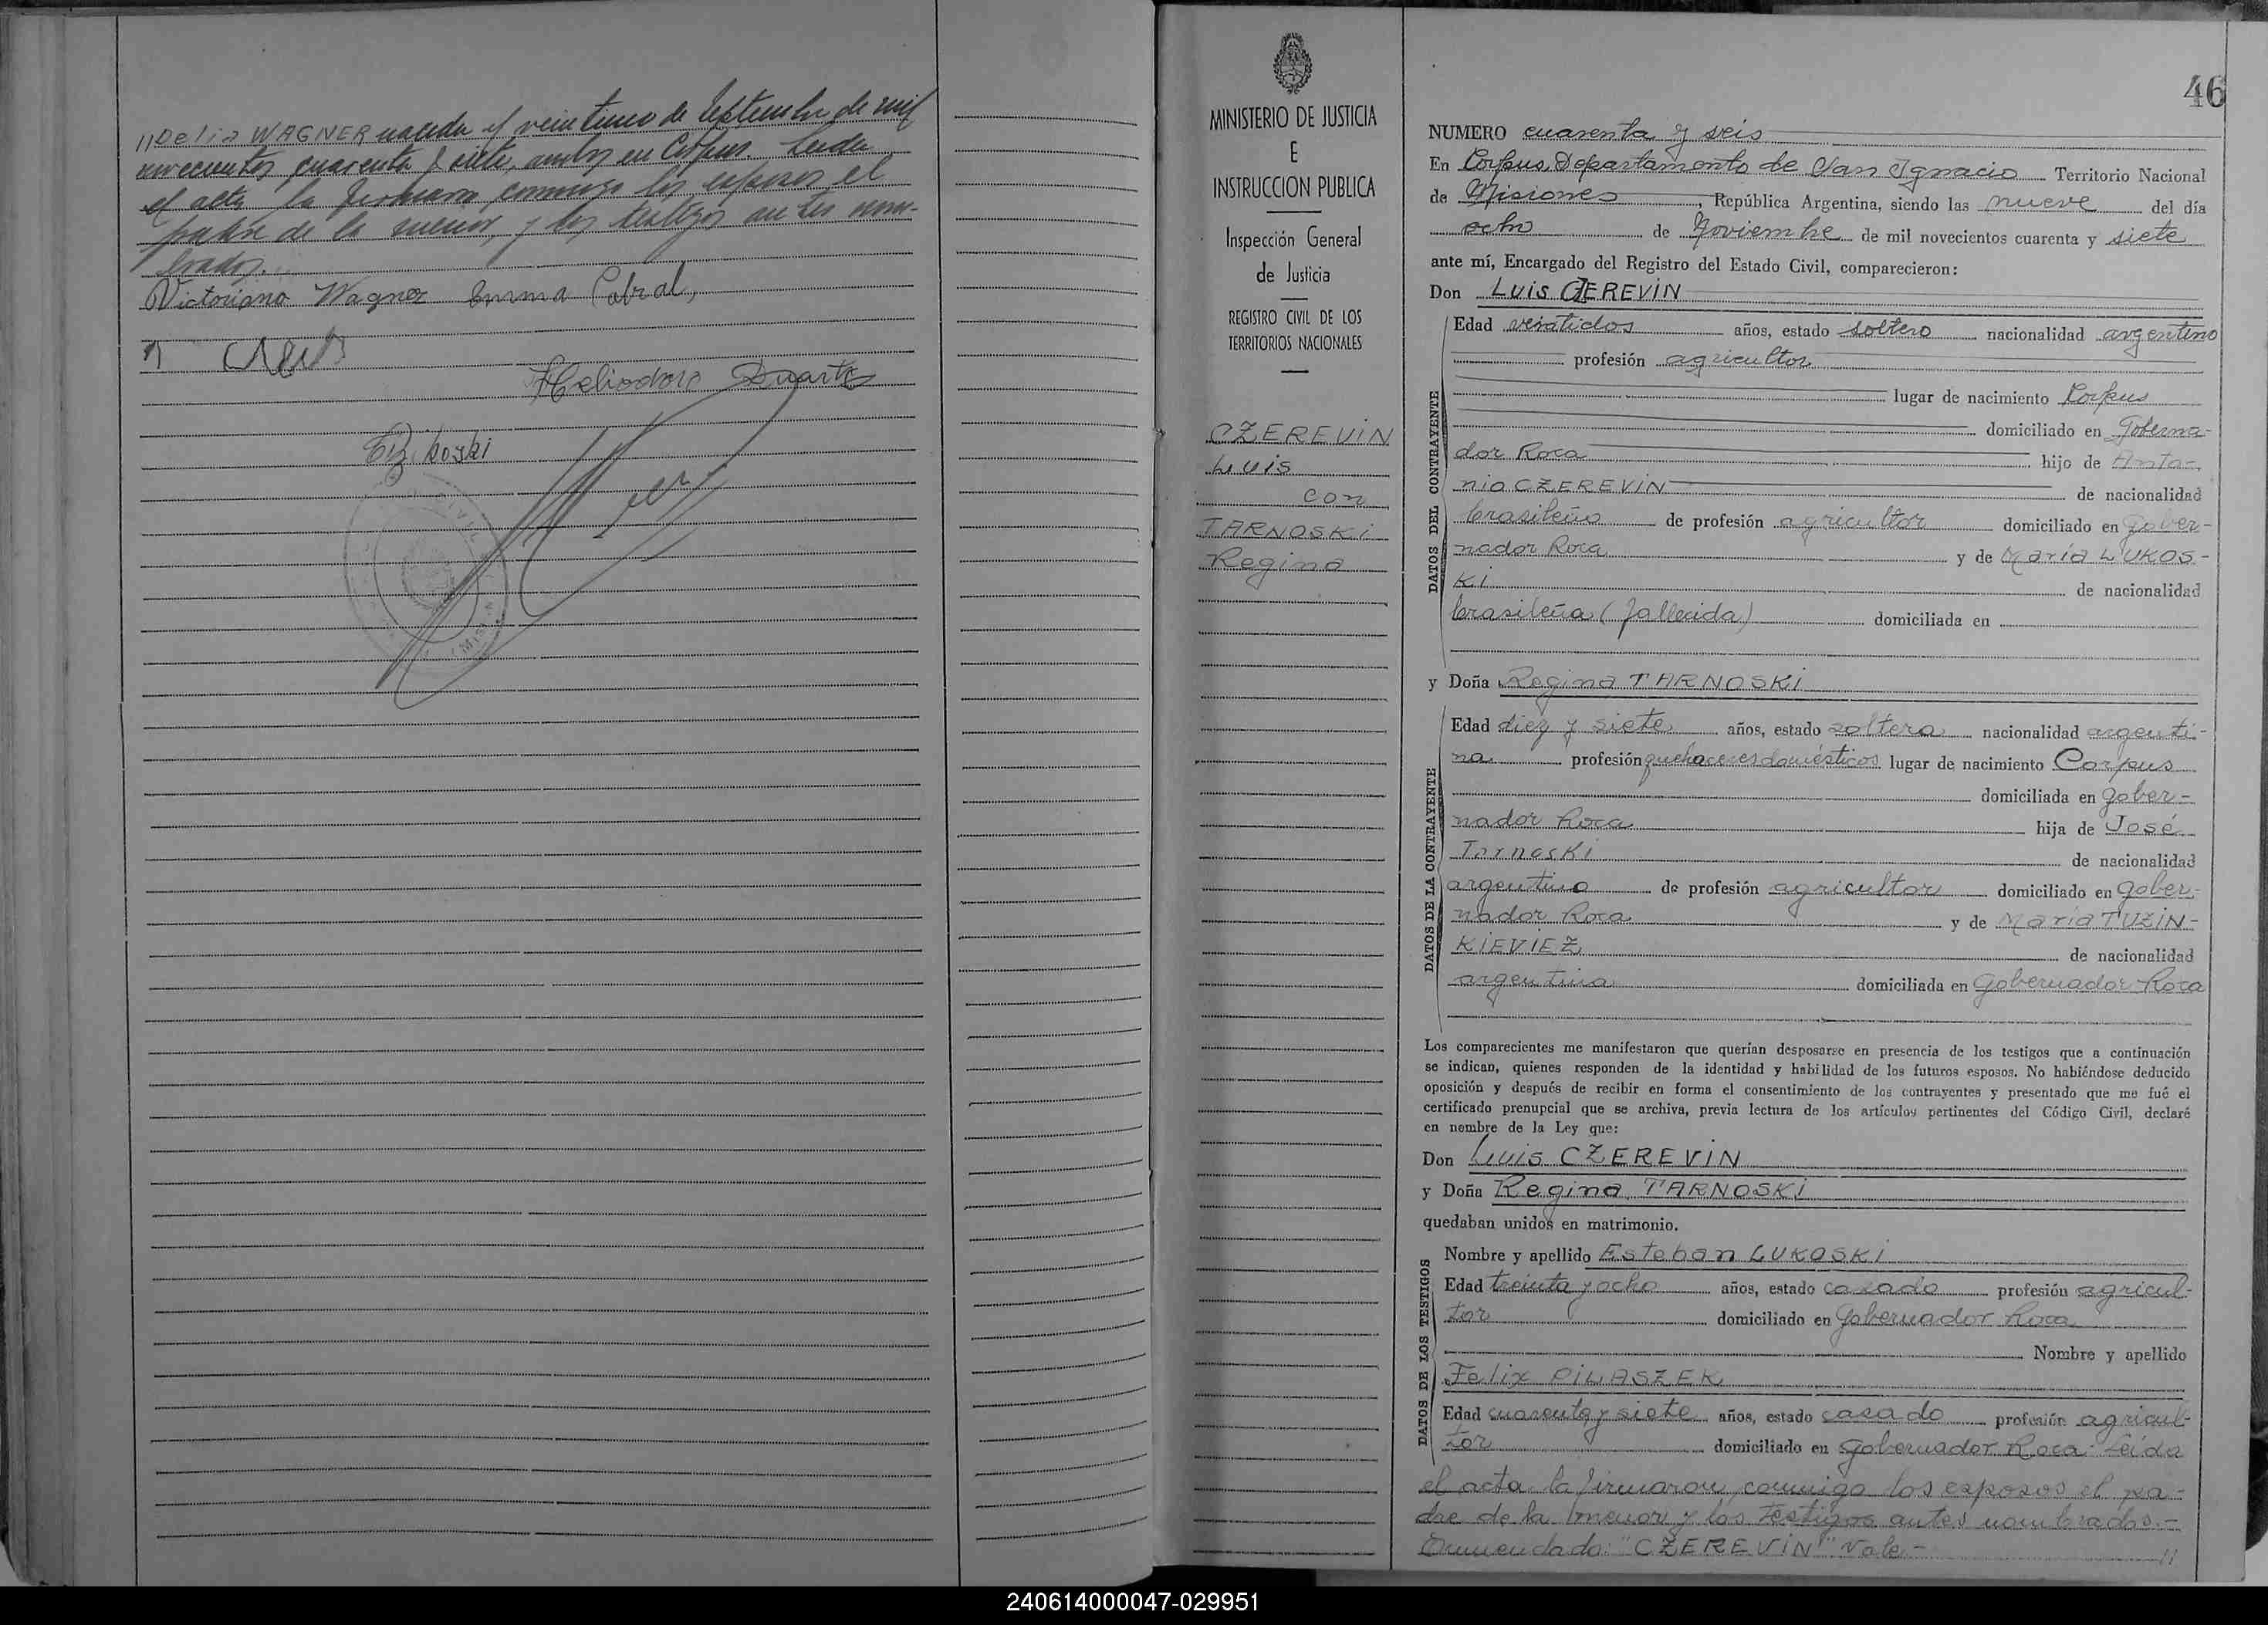 //Delia WAGNER nacida el veintiuno de Septiembre de mil
novecientos cuarenta y siete, ambos en Corpus. Leida
el acta la firmaron conmigo los esposos el
padre de la menor, y los testigos antes nom-
brados.
Victoriano Wagner Emma Cabral,
Heliodoro Duarte
MINISTERIO DE JUSTICIA
E
INSTRUCCION PUBLICA
Inspección General
de Justicia
REGISTRO CIVIL DE LOS
TERRITORIOS NACIONALES
CZEREVIN
Luis
con
TARNOSKI
Regina
46
NUMERO cuarenta y seis
En Corpus, Departamento de San Ignacio Territorio Nacional
de Misiones, República Argentina, siendo las nueve del día
ocho de Noviembre de mil novecientos cuarenta y siete
ante mí, Encargado del Registro del Estado Civil, comparecieron:
Don Luis CZEREVIN
DATOS DEL CONTRAYENTE
Edad veintidos años, estado soltero nacionalidad argentino
profesión agricultor
lugar de nacimiento Corpus
domiciliado en Goberna-
dor Roca hijo de Anto-
nio CZEREVIN de nacionalidad
brasileño de profesión agricultor domiciliado en Gober-
nador Roca y de María LUKOS-
KI de nacionalidad
brasileña (fallecida) domiciliada en
y Doña Regina TARNOSKI
DATOS DE LA CONTRAYENTE
Edad diez y siete años, estado soltera nacionalidad argenti-
na profesión quehaceres domésticos lugar de nacimiento Corpus
domiciliada en Gober-
nador Roca hija de José
Tarnoski de nacionalidad
argentino de profesión agricultor domiciliado en Gober-
nador Roca y de María TUZIN-
KIEVIEZ de nacionalidad
argentina domiciliada en Gobernador Roca
Los comparecientes me manifestaron que querían desposarse en presencia de los testigos que a continuación
se indican, quienes responden de la identidad y habilidad de los futuros esposos. No habiéndose deducido
oposición y después de recibir en forma el consentimiento de los contrayentes y presentado que me fué el
certificado prenupcial que se archiva, previa lectura de los artículos pertinentes del Código Civil, declaré
en nombre de la Ley que:
Don Luis CZEREVIN
y Doña Regina TARNOSKI
quedaban unidos en matrimonio.
DATOS DE LOS TESTIGOS
Nombre y apellido Esteban LUKOSKI
Edad treinta y ocho años, estado casado profesión agricul-
tor domiciliado en Gobernador Roca
Nombre y apellido
Felix PILASZEK
Edad cuarenta y siete años, estado casado profesión agricul-
tor domiciliado en Gobernador Roca. Leida
el acta la firmaron conmigo los esposos el pa-
dre de la menor y los testigos antes nombrados.-
Enmendado: "CZEREVIN" Vale.- //
240614000047-029951